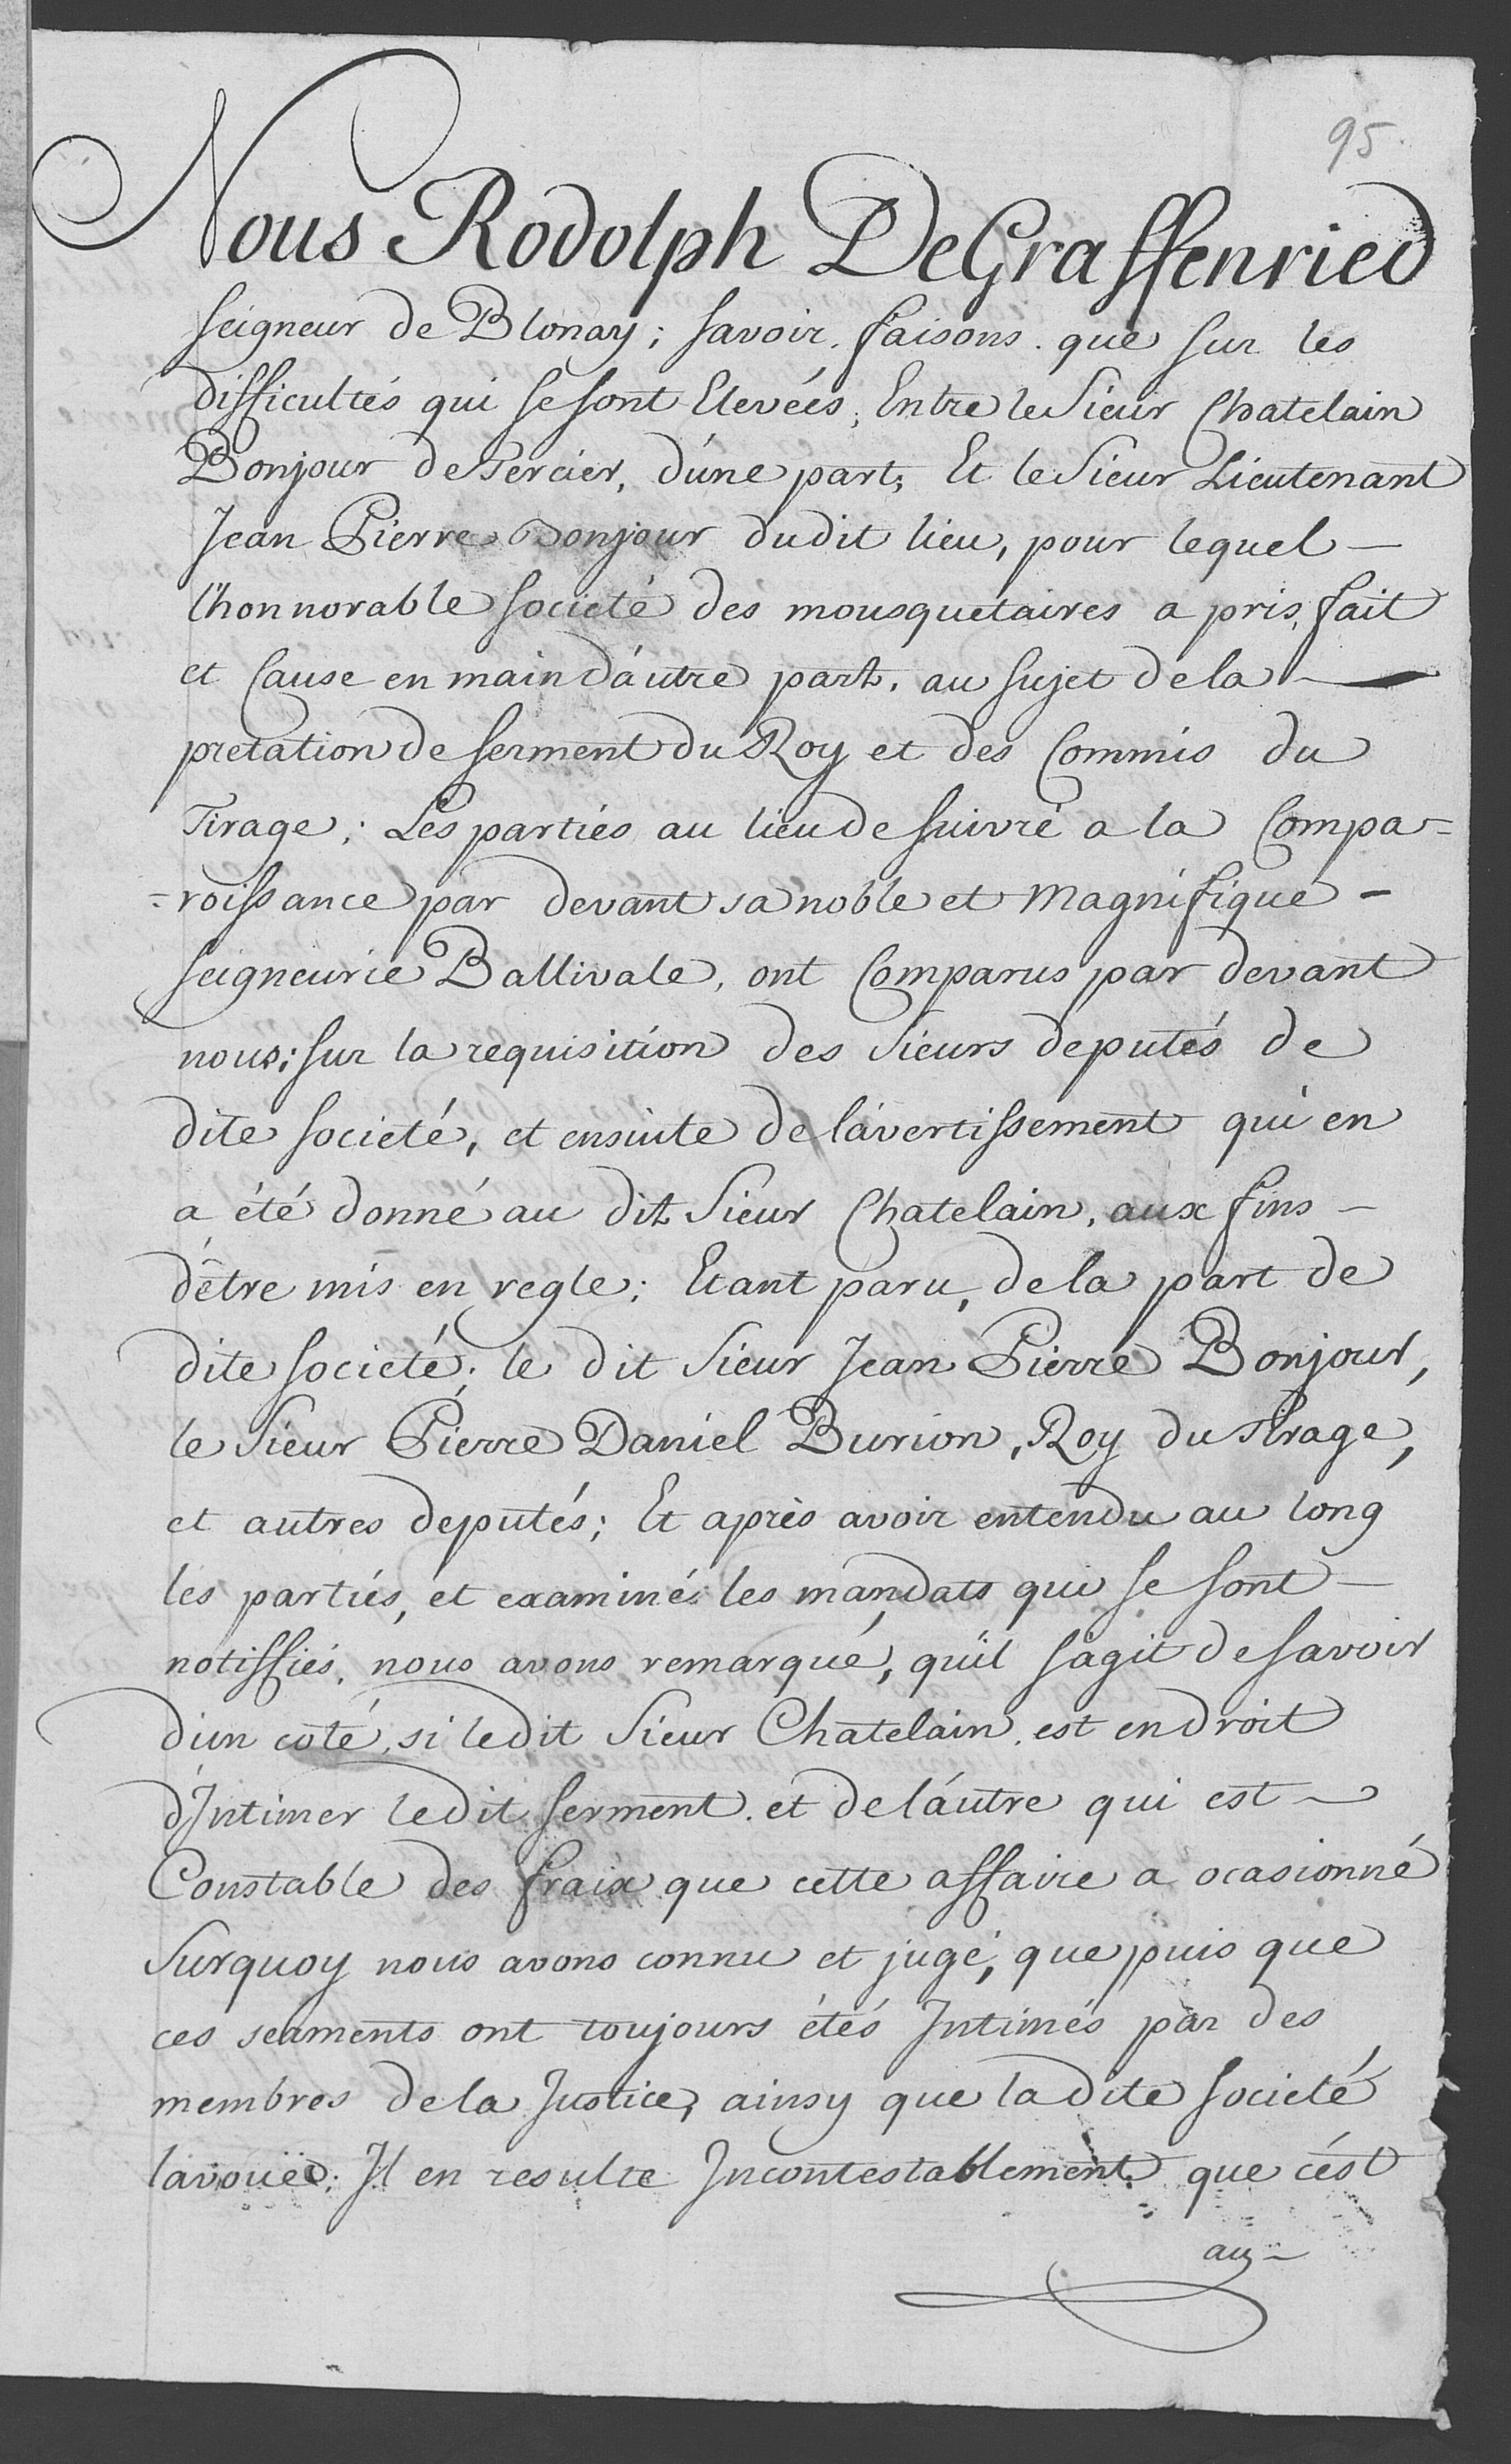 95.
Nous Rodolph DeGraffenried
seigneur de Blonay; savoir faisons que sur les
difficultés qui se sont Elevées, Entre le Sieur Chatelain
Bonjour de Tercier, d'une part, Et le Sieur Lieutenant
Jean Pierre Bonjour dudit lieu, pour lequel —
l'honnorable societé des mousquetaires a pris fait
et Cause en main d'autre part, au sujet de la —
pretation de serment du Roy et des Commis du
Tirage; Les parties au lieu de suivre a la Compa=
=roissance par devant sa noble et Magnifique —
seigneurie Ballivale, ont Comparus par devant
nous; sur la requisition des Sieurs deputés de
dite societé, et ensuite de l'avertissement qui en
a été donné au dit Sieur Chatelain, aux fins —
d'être mis en regle; Etant paru, de la part de
dite societé; le dit Sieur Jean Pierre Bonjour,
le Sieur Pierre Daniel Burion, Roy du Tirage,
et autres deputés; Et après avoir entendu au long
les parties, et examinés les mandats qui se sont —
notiffiés, nous avons remarqué, qu'il s'agit de savoir
d'un coté, si le dit Sieur Chatelain est en droit
d'Intimer le dit serment et de l'autre qui est —
Coustable des fraix que cette affaire a ocasionné
Surquoy nous avons connu et jugé, que puis que
ces serments ont toujours étés Intimés par des
membres de la Justice, ainsy que la dite societé
l'avouëe; Il en resulte Incontestablement que c'est
au —